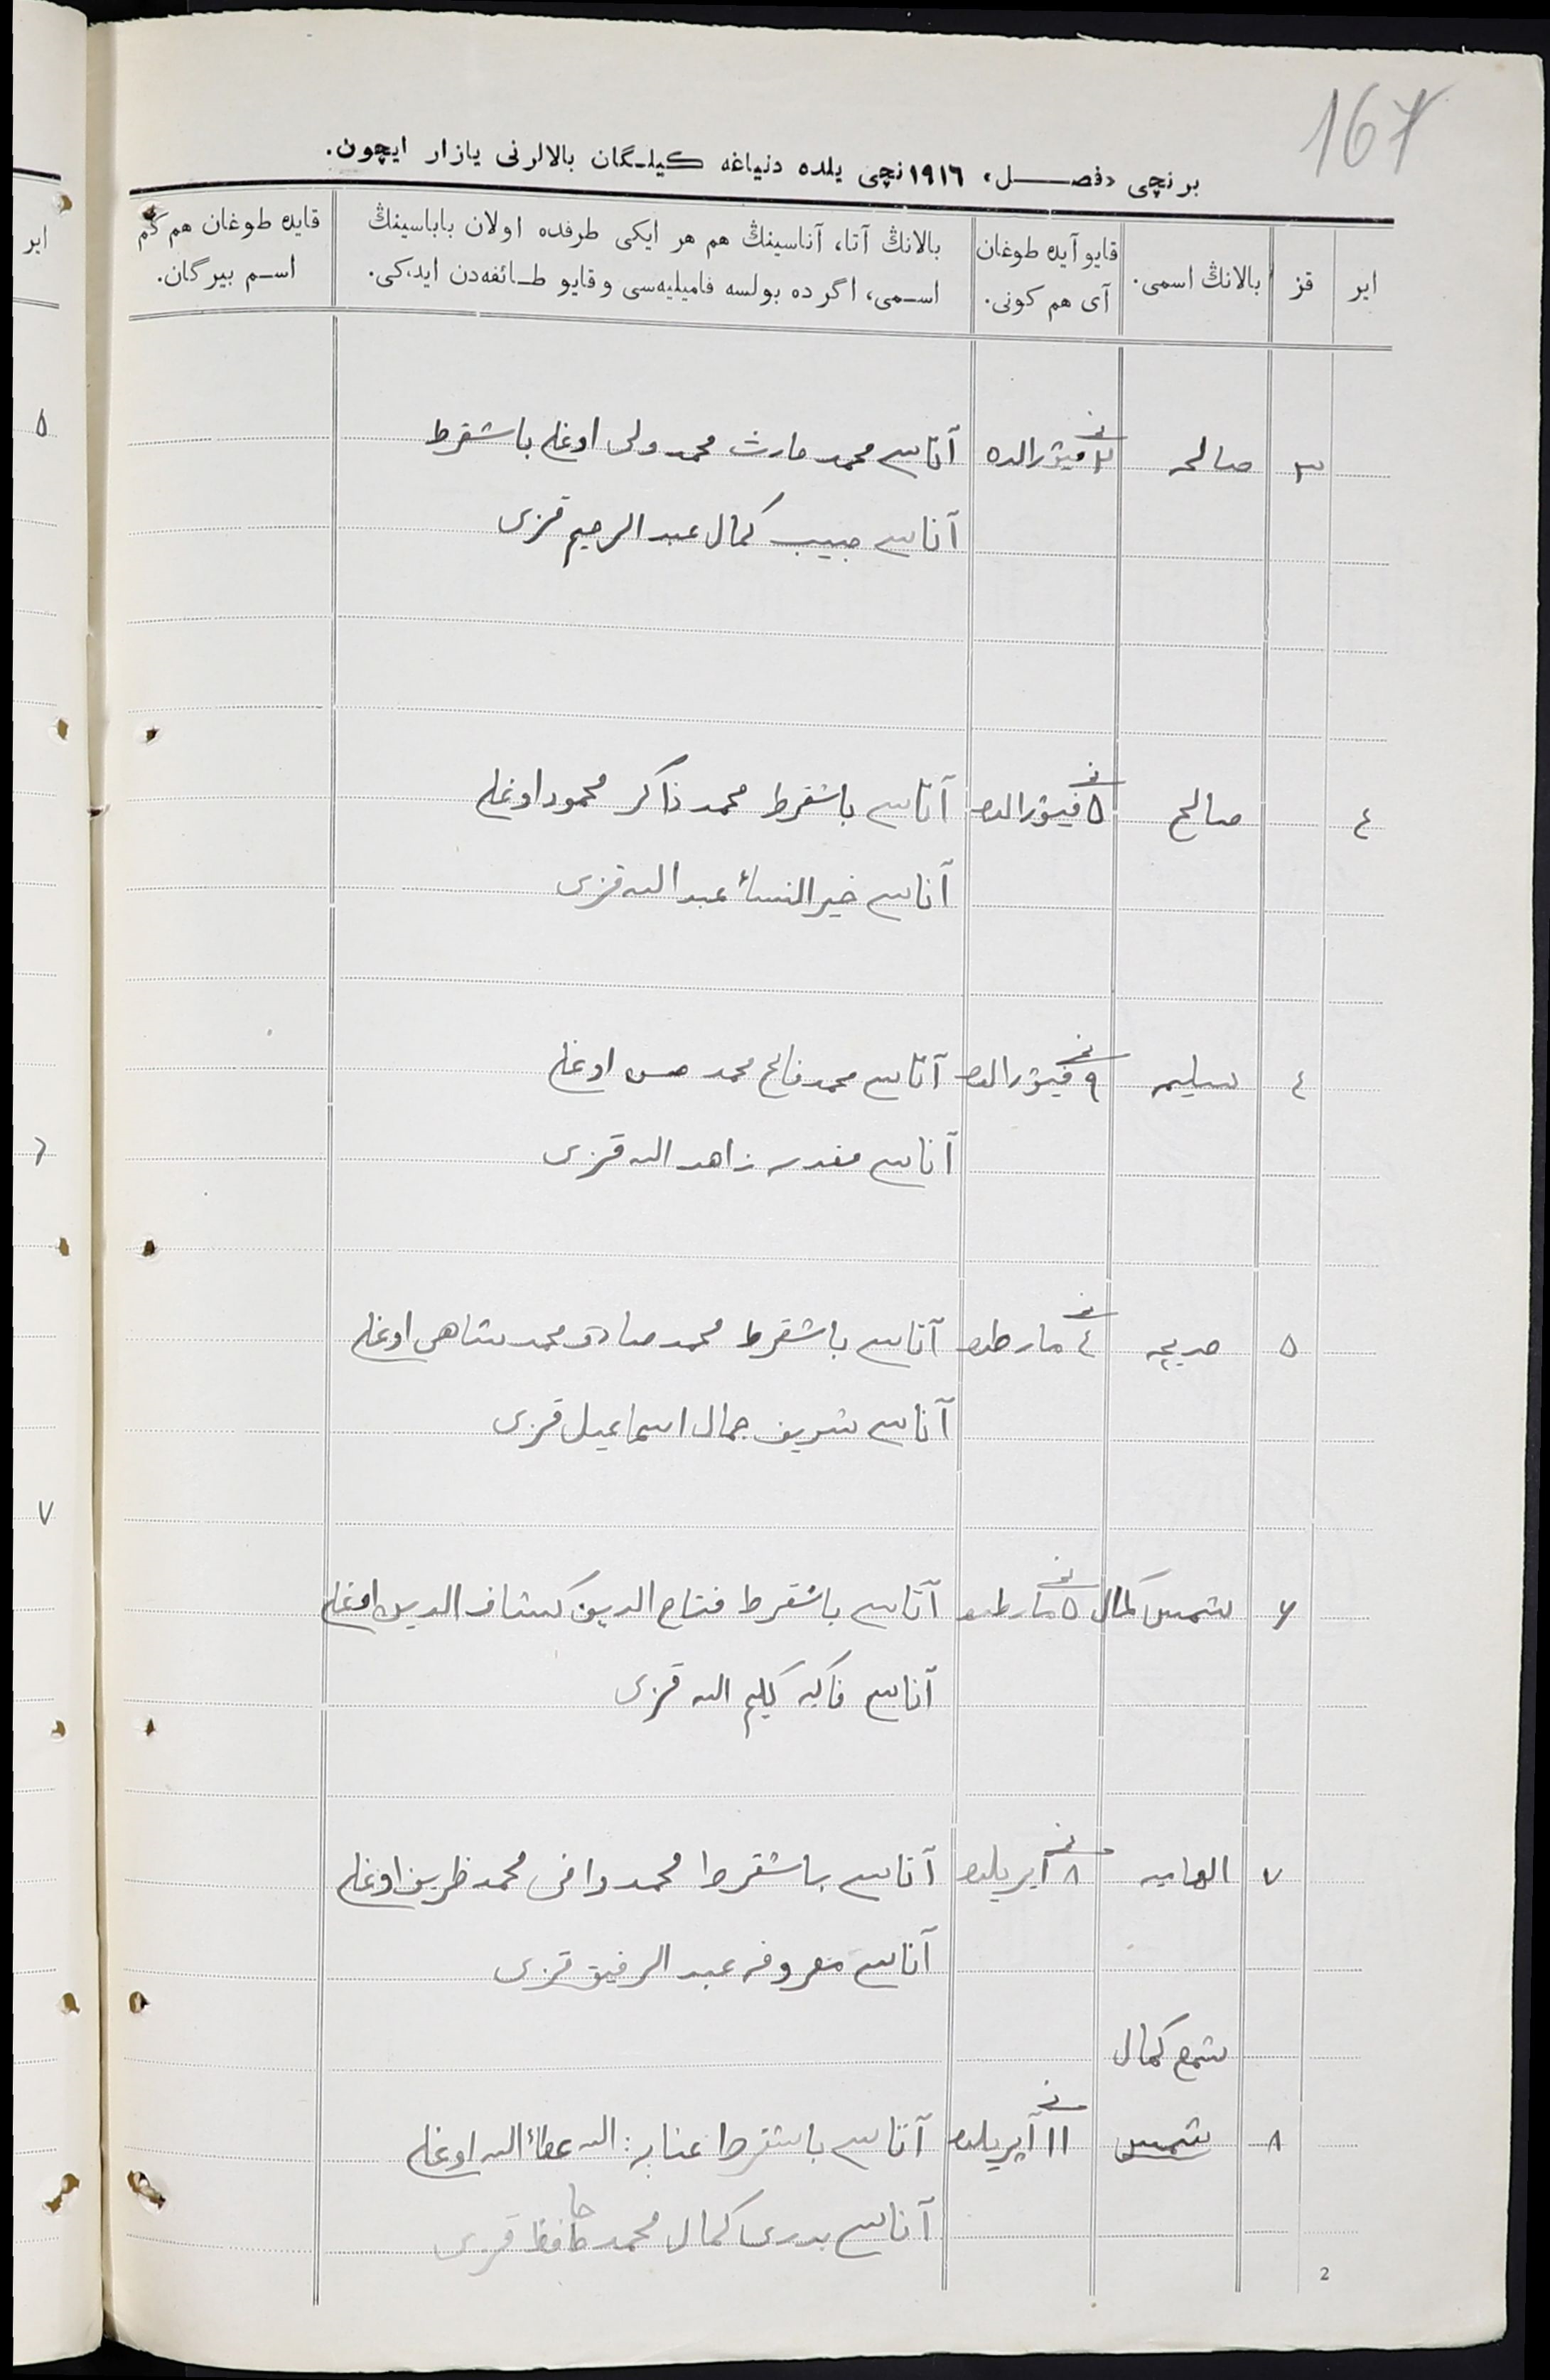 167
برنچی «فصل» ١٩١٦نچی یلده دنیاغه کیلگان بالالرنی یازار ایچون.
ایر
قز
بالانڭ اسمی.
قایو آیده طوغان
آی هم کونی.
بالانڭ آتا، آناسینڭ هم هر ایکی طرفده اولان باباسینڭ
اسمی، اگرده بولسه فامیلیه‌سی و قایو طائفه‌دن ایدکی.
قایده طوغان هم کم
اسم بیرگان.
٣ صالحه ٢نچی فیورالده آتاسی محمد حارث محمد ولی اوغلی باشقرط
آناسی حبیب کمال عبد الرحیم قزی
٤ صالح ٥نچی فیورالده آتاسی باشقرط محمد ذاکر محمود اوغلی
آناسی خیر النساء عبد الله قزی
٤ سلیمه ٩نچی فیورالده آتاسی محمد فاتح محمد حسن اوغلی
آناسی زاهد الله قزی
٥ ٤نچی مارطده آتاسی باشقرط محمد صادق محمد شاهی اوغلی
آناسی شریف جمال اسماعیل قزی
٦ شمس کمال ٥نچی مارطده آتاسی باشقرط فتاح الدین کشاف الدین اوغلی
آناسی کلیم الله قزی
٧ الهامیه ٨نچی آپریلده آتاسی باشقرط محمد وافی محمد ظریف اوغلی
آناسی معروفه عبد الرفیق قزی
شمع کمال
٨ شمس ١١نچی آپریلده آتاسی باشقرط عنایة الله عطاء الله اوغلی
آناسی بدری کمال محمد حافظ قزی
2
ایر
٥
٦
٧